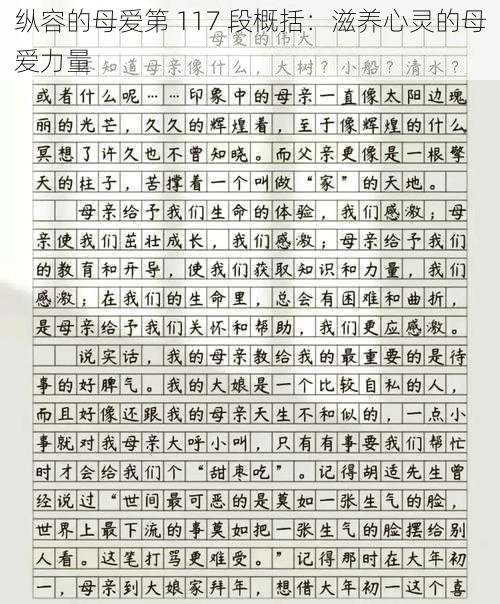 纵容的母爱第 117 段概括：滋养心灵的母
爱力量
母爱的伟大
不知道母亲像什么，大树？小船？清水？
或者什么呢……印象中的母亲一直像太阳边瑰
丽的光芒，久久的辉煌着，至于像辉煌的什么
冥想了许久也不曾知晓。而父亲更像是一根擎
天的柱子，苦撑着一个叫做“家”的天地。
母亲给予我们生命的体验，我们感激；母
亲使我们茁壮成长，我们感激；母亲给予我们
的教育和开导，使我们获取知识和力量，我们
感激；在我们的生命里，总会有困难和曲折，
是母亲给予我们关怀和帮助，我们更应感激。
说实话，我的母亲教给我的最重要的是待
事的好脾气。我的大娘是一个比较自私的人，
而且好像还跟我的母亲天生不和似的，一点小
事就对我母亲大呼小叫，只有有事要我们帮忙
时才会给我们个“甜枣吃”。记得胡适先生曾
经说过“世间最可恶的是莫如一张生气的脸，
世界上最下流的事莫如把一张生气的脸摆给别
人看。这笔打骂更难受。”记得那时在大年初
一，母亲到大娘家拜年，想借大年初一这个喜